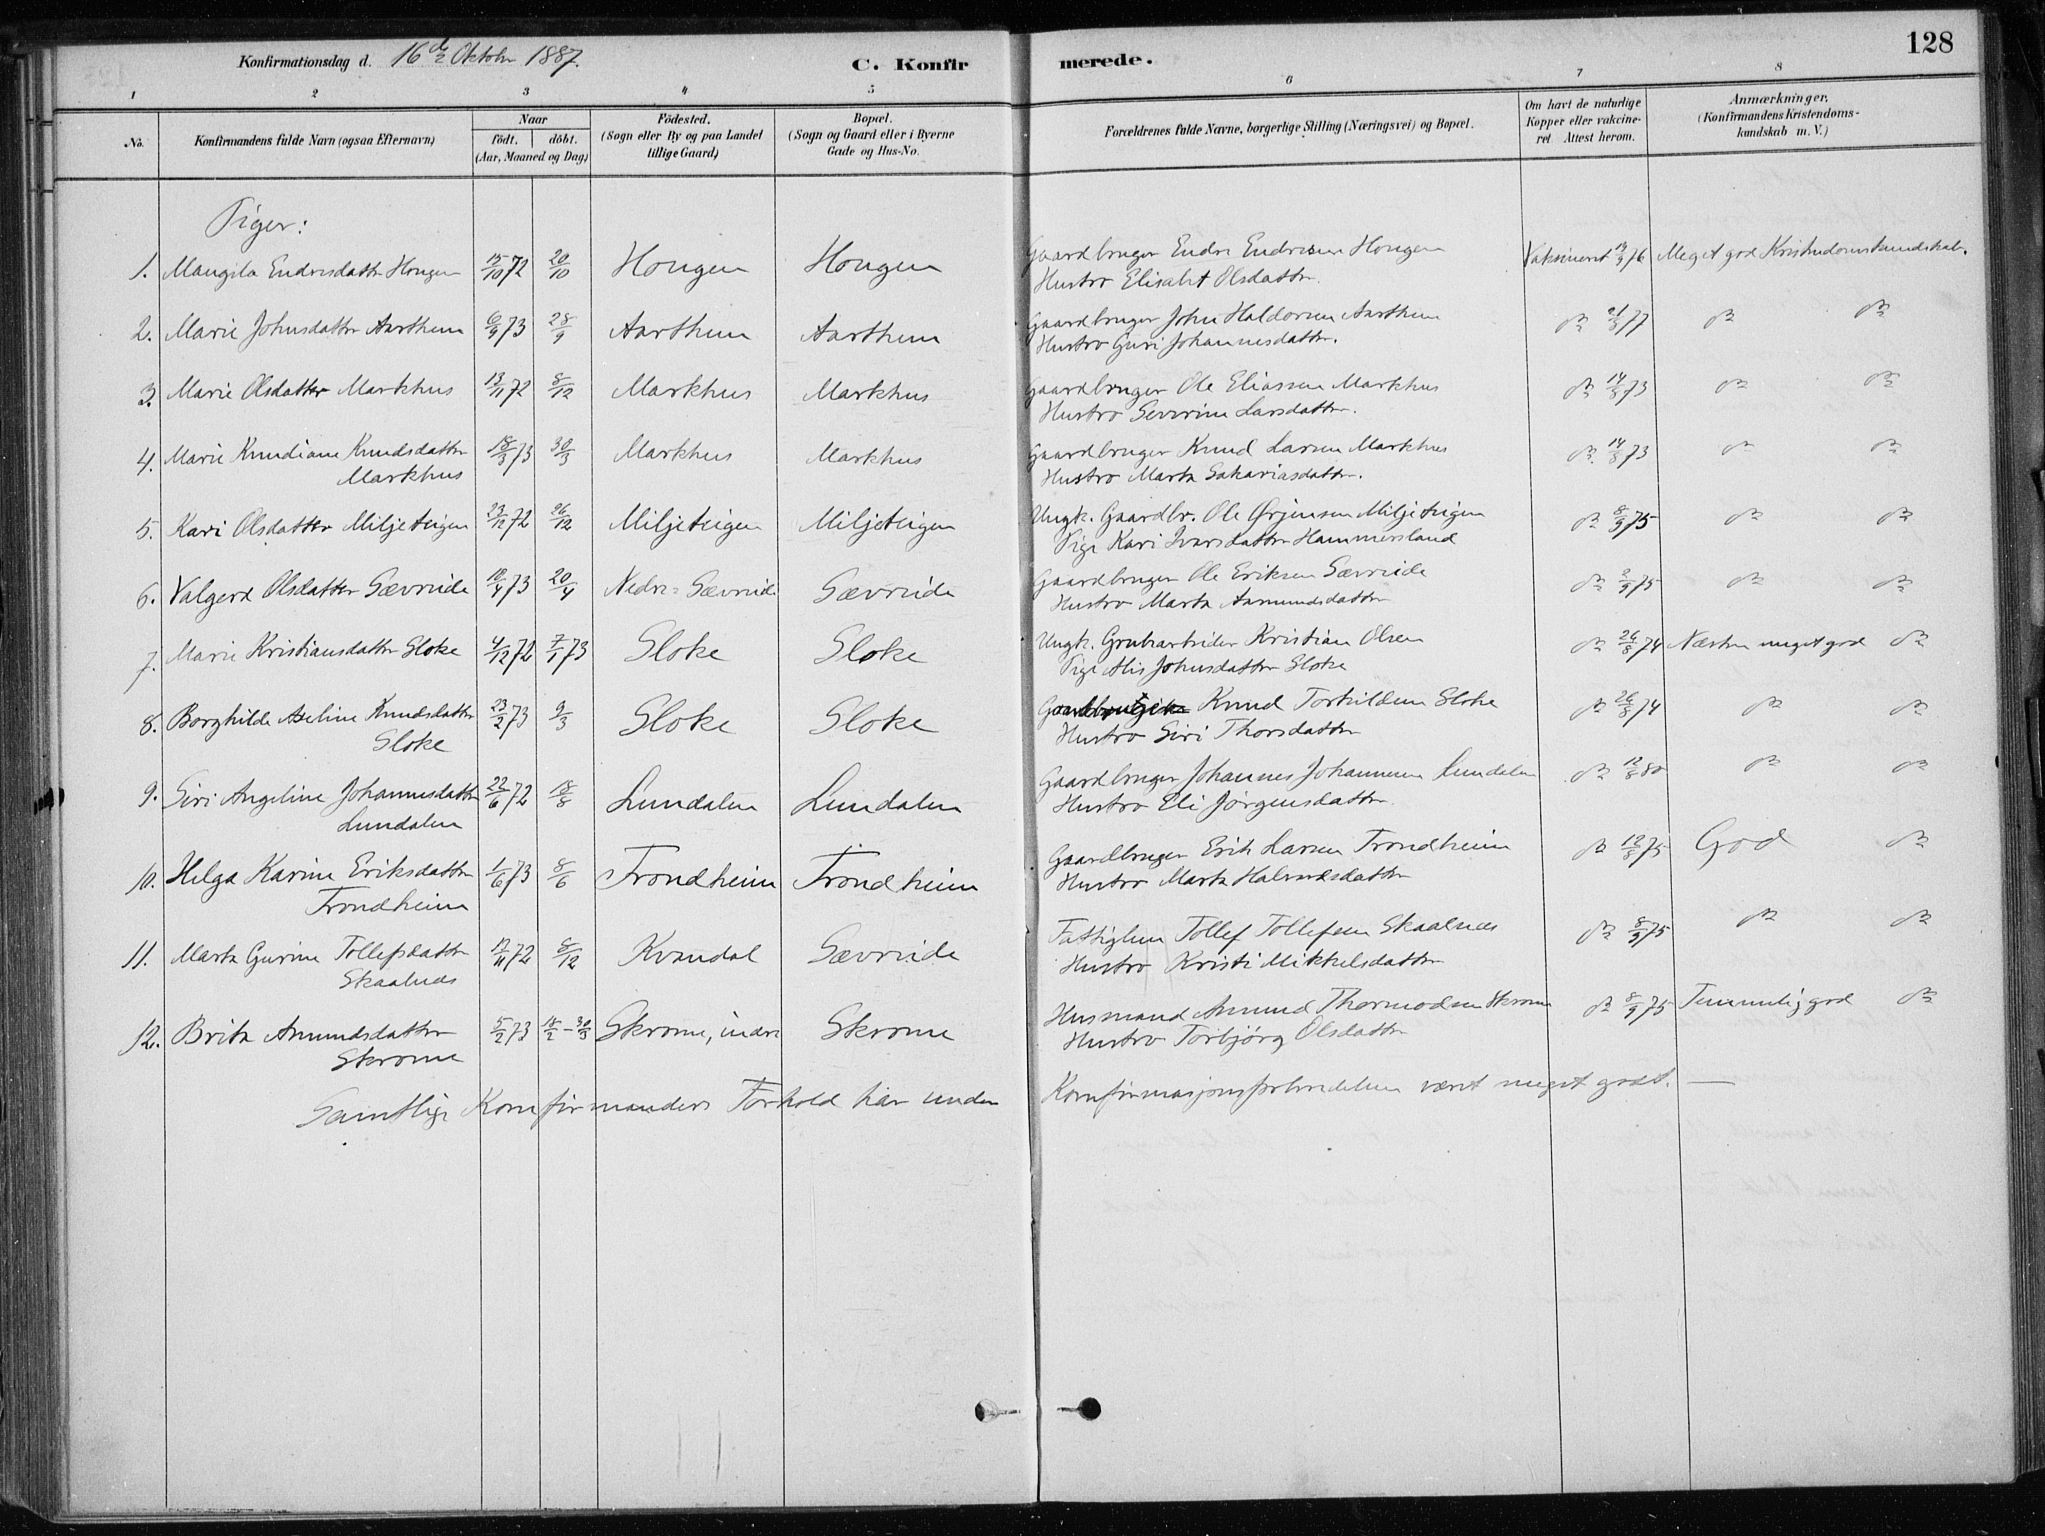 128
Konfirmationsdag d. 16de Oktober 1887.
C. Konfirmerede.
1 2 3 4 5 6 7 8
No.
Konfirmandens fulde Navn (ogsaa Efternavn)
Naar
födt. döbt.
(Aar, Maaned og Dag)
Födested.
(Sogn eller By og paa Landet
tillige Gaard)
Bopæl.
(Sogn og Gaard eller i Byerne
Gade og Hus-No.
Forældrenes fulde Navne, borgerlige Stilling (Næringsvei) og Bopæl.
Om havt de naturlige
Kopper eller vakcine-
ret. Attest herom.
Anmærkninger.
(Konfirmandens Kristendoms-
kundskab m. V.)
Piger:
1. Maugila Endresdatter Hougen 15/10 72 20/10 Hougen Hougen Gaardbruger Endre Endresen Hougen Vaksineret 14/9 76 Meget god Kristendomskundskab.
Hustro Elisabet Olsdatter.
2. Marie Johnsdatter Aarthun 6/9 73 28/9 Aarthun Aarthun Gaardbruger John Haldorsen Aarthun do 21/9 77 do do
Hustro Guri Johannesdatter.
3. Marie Olsdatter Markhus 13/11 72 8/12 Markhus Markhus Gaardbruger Ole Eliassen Markhus do 14/8 73 do do
Hustro Severine Larsdatter.
4. Marie Knudiane Knudsdatter 18/3 73 30/3 Markhus Markhus Gaardbruger Knud Larsen Markhus do 14/8 73 do do
Markhus Hustro Marta Sakariasdatter.
5. Kari Olsdatter Miljeteigen 23/12 72 26/12 Miljeteigen Miljeteigen Ungk. Gaardbr. Ole Ørjensen Miljeteigen do 8/9 75 do do
Pige Kari Ivarsdatter Hammersland
6. Valgerd Olsdatter Sævreide 10/4 73 20/4 Nedre-Sævreide Sævreide Gaardbruger Ole Eriksen Sævreide do 2/9 75 do do
Hustro Marta Aamundsdatter
7. Marie Kristiansdatter Sloke 4/12 72 7/1 73 Sloke Sloke Ungk. Grubearbeider Kristian Olsen do 26/8 74 Næsten meget god do
Pige Alis Johnsdatter Sloke
8. Borghilde Axeline Knudsdatter 23/2 73 9/3 Sloke Sloke Gaardbruger Knud Torkildsen Sloke do 26/8 74 do do
Sloke Hustro Siri Thorsdatter
9. Siri Angeline Johannesdatter 22/6 72 18/8 Lundalen Lundalen Gaardbruger Johannes Johannesen Lundalen do 12/8 80 do do
Lundalen Hustro Eli Jørgensdatter.
10. Helga Karine Eriksdatter 1/6 73 8/6 Trondheim Trondheim Gaardbruger Erik Larsen Trondheim do 12/8 75 God do
Trondheim Hustro Marta Halvorsdatter
11. Marta Gurine Tollefsdatter 12/11 72 8/12 Kvandal Sævreide Fattiglem Tollef Tollefsen Skaalnes do 8/9 75 do do
Skaalnes Hustro Kristi Mikkelsdatter
12. Brita Amundsdatter 5/2 73 15/2 - 30/3 Skrome, indre Skrome Husmand Amund Thormodsen Skrome do 8/9 75 Temmelig god do
Skrome Hustro Torbjørg Olsdatter
Samtlige Konfirmanders Forhold har under Konfirmasjonsforberedelsen været meget godt. —